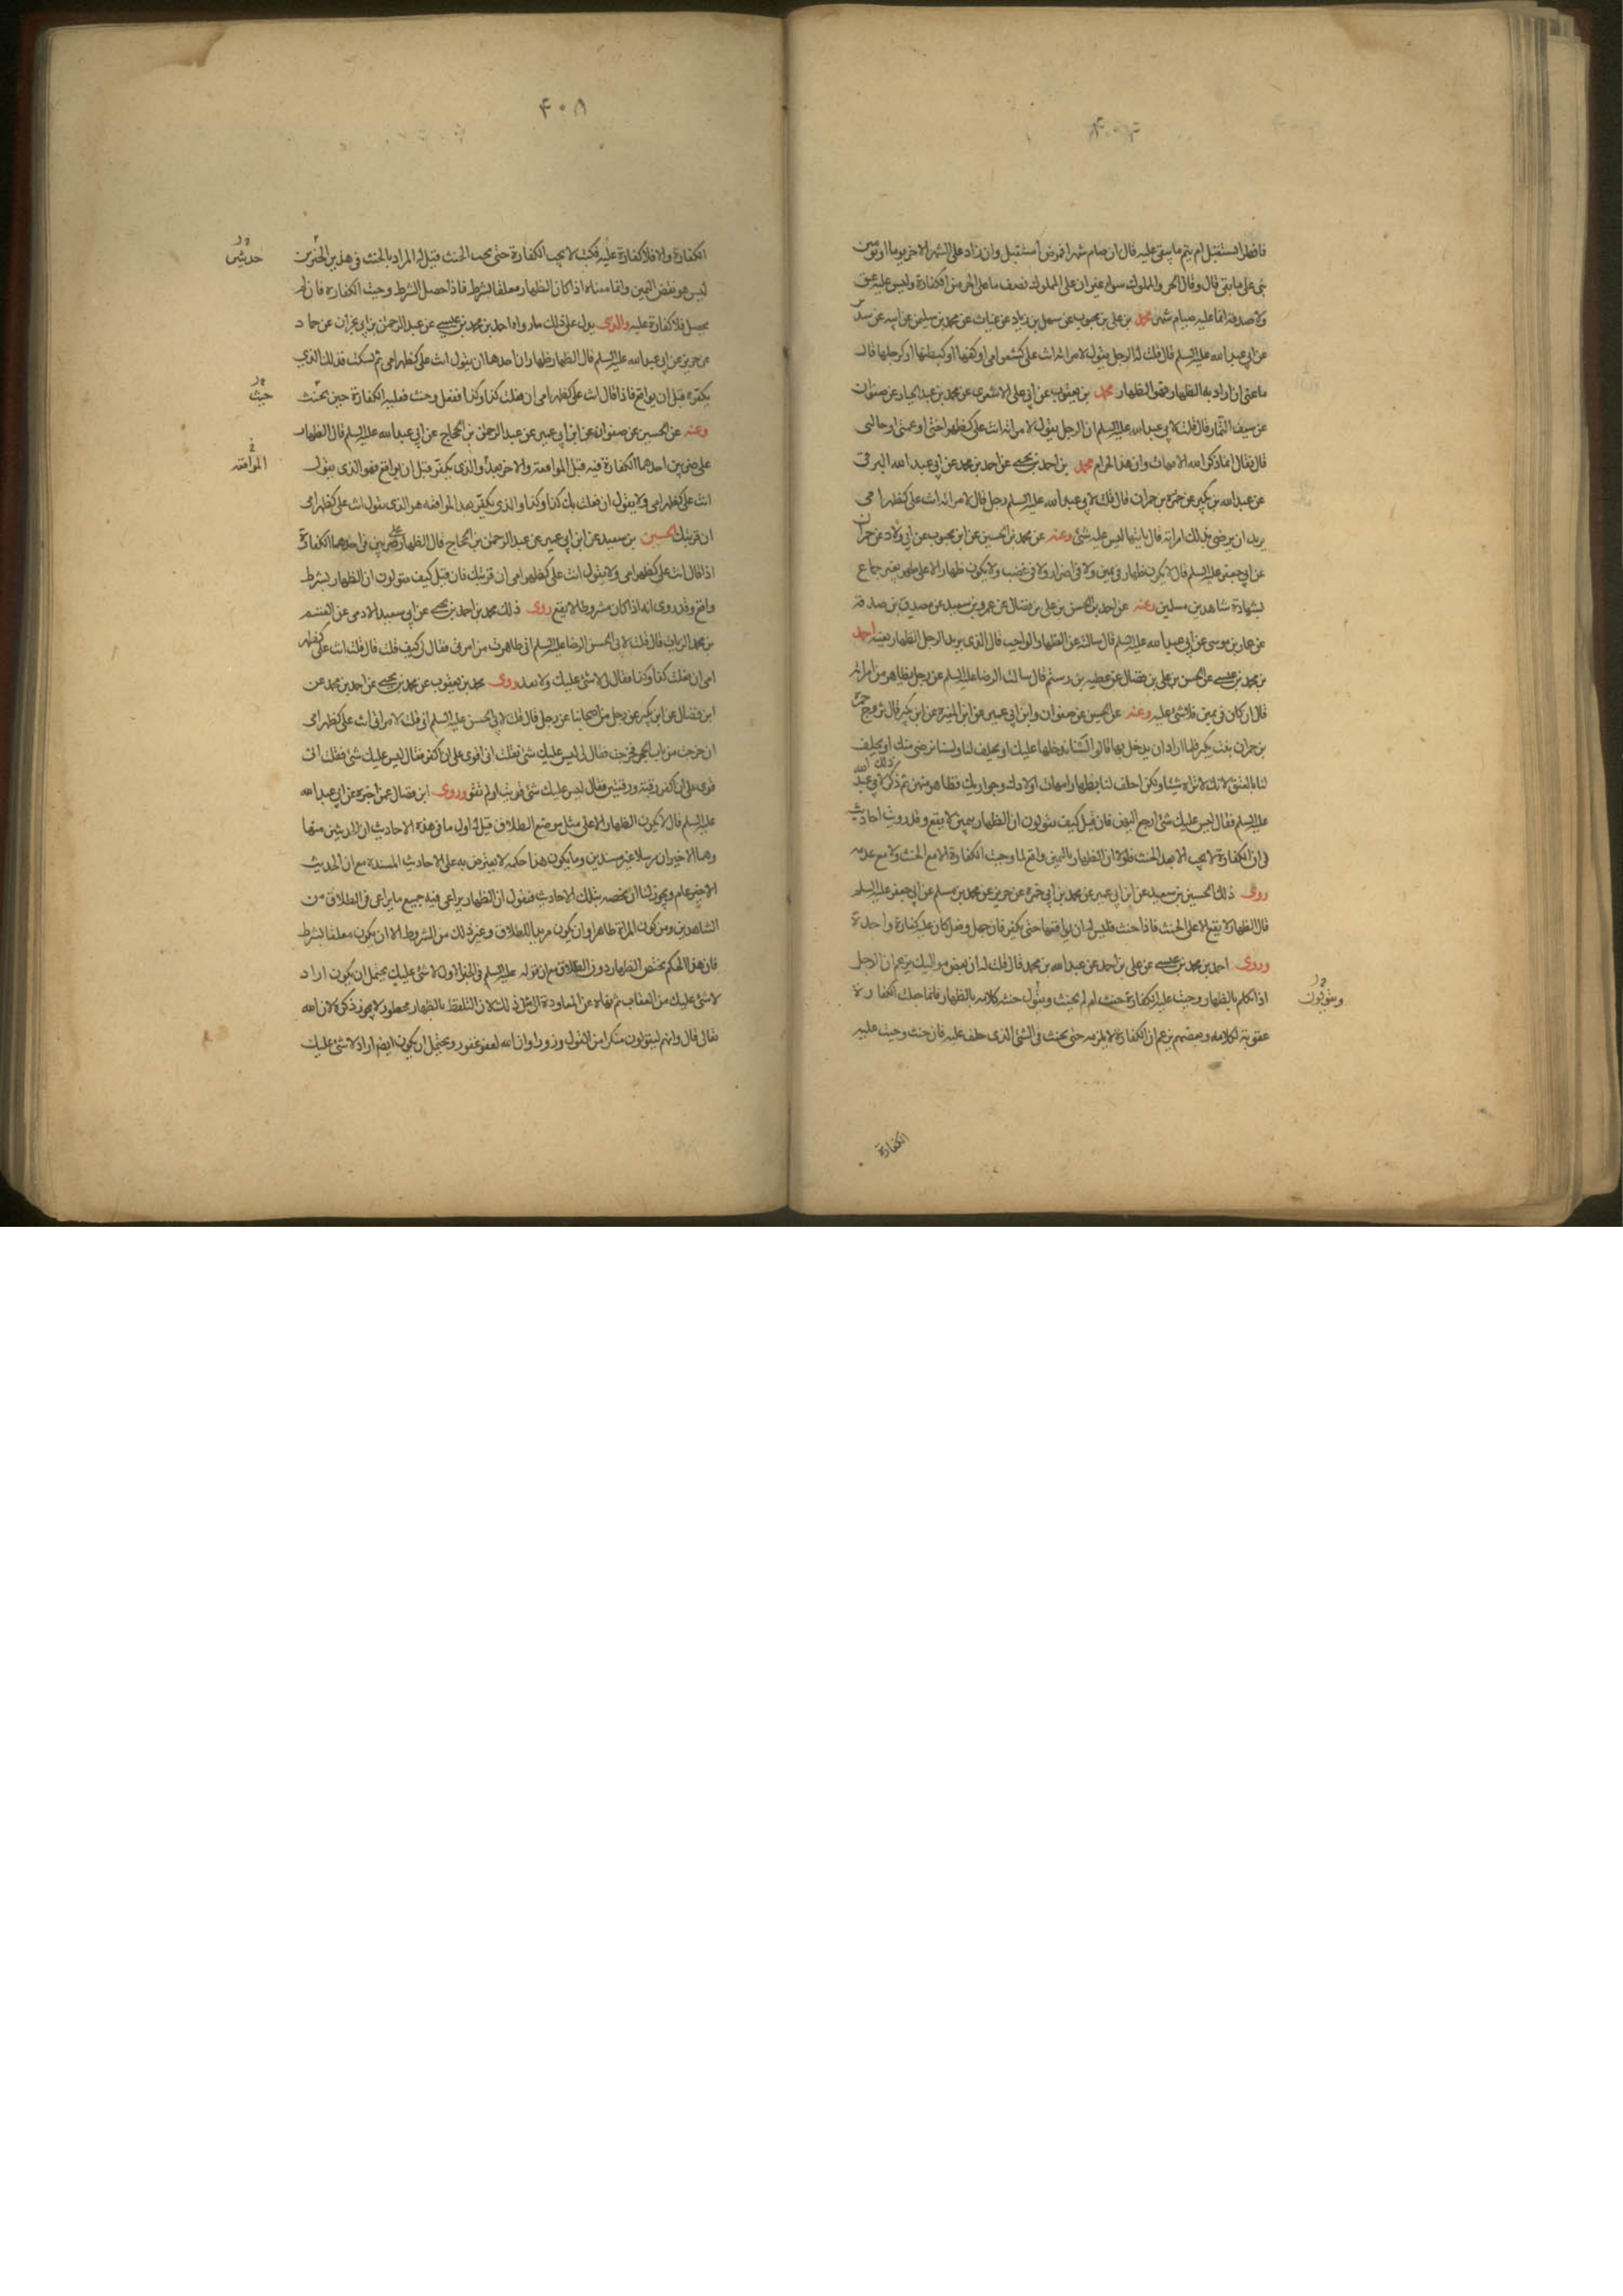 فافطر ايستقبل ام يتم ما بقى عليه قال ان صام شهرا فمرض استقبل وان زاد على الشهر الاخر يوما او يومين
بنى على ما بقى قال وقال الحر والمملوك سواء غير ان على المملوك نصف ما على الحر من الكفارة وليس عليه عتق
ولا صدقة انما عليه صيام شهر محمد بن على بن محبوب عن سهل بن زياد عن غياث عن محمد بن سليمن عن ابيه عن سدير
عن ابى عبد الله عليه السلم قال قلت له الرجل يقول لامراته انت على كشعر امى او ككفها او كبطنها او كرجلها قال
ما عنى ان اراد به الظهار فهو الظهار محمد بن يعقوب عن ابى على الاشعرى عن محمد بن عبد الجبار عن صفوان
عن سيف التمار قال قلت لابى عبد الله عليه السلم ان الرجل يقول لامراته انت على كظهر اختى او عمتى او خالتى
قال فقال انما ذكر الله الامهات وان هذا لحرام محمد بن احمد بن يحيى عن احمد بن محمد عن ابى عبد الله البرقى
عن عبد الله بن بكير عن حمزة بن حمران قال قلت لابى عبد الله عليه السلم رجل قال لامراته انت على كظهر امى
يريد ان يرضى بذلك امراته قال ياتيها ليس عليه شئ وعنه عن محمد بن الحسين عن ابن محبوب عن ابى ولاد عن حمران
عن ابى جعفر عليه السلم قال لا يكون ظهار فى يمين ولا فى اضرار ولا فى غضب ولا يكون ظهار الا على طهر بغير جماع
بشهادة شاهدين مسلمين وعنه عن احمد بن الحسن بن على بن فضال عن عمرو بن سعيد عن مصدق بن صدقة
عن عمار بن موسى عن ابى عبد الله عليه السلم قال سالته عن الظهار الواجب قال الذى يريد الرجل الظهار بعينه احمد
بن محمد بن عيسى عن الحسن بن على بن فضال عن عطيه بن رستم قال سالت الرضا عليه السلم عن رجل يظاهر من امراته
قال ان كان فى يمين فلا شئ عليه وعنه عن الحسين عن صفوان وابن ابى عمير عن ابن المغيرة عن ابن بكير قال تزوج حمزة
بن حمران بنت بكير فلما اراد ان يدخل بها قالوا لسنا ندخلها عليك او تحلف لنا ولسنا نرضى منك ان تحلف
لنا بالعتق لانك لا تراه شيئا ولكن احلف لنا بظهار امهات اولادك وجواريك فظاهر منهن ثم ذكر ذلك لابى عبد الله
عليه السلم فقال ليس عليك شئ ارجع اليهن فان قيل كيف تقولون ان الظهار بيمين لا يقع وقد رويت احاديث
فى ان الكفارة لا يجب الا بعد الحنث فلولا ان الظهار باليمين واقع لما وجبت الكفارة لا مع الحنث ولا مع عدمه
روى ذلك الحسين بن سعيد عن ابن ابى عمير عن محمد بن ابى حمزة عن حريز عن محمد بن مسلم عن ابى جعفر عليه السلم
قال الظهار لا يقع الا على الحنث فاذا حنث فليس له ان يواقعها حتى يكفر فان جهل وفعل كان عليه كفارة واحدة
وروى احمد بن محمد بن عيسى عن على بن احمد عن عبد الله بن محمد قال قلت له ان بعض مواليك يزعم ان الرجل
اذا تكلم بالظهار وجبت عليه الكفارة حنث ام لم يحنث ويقول حنثه كلامه بالظهار فانما جعلت الكفارة
عقوبة لكلامه وبعضهم يزعم ان الكفارة لا يلزمه حتى يحنث فى الشئ الذى حلف عليه فان حنث وجبت عليه
ويقولون
الكفارة
۴۰۸
الكفارة والا فلا كفارة عليه فكتب لا يجب الكفارة حتى يجب الحنث قيل له المراد بالحنث فى هذين الخبرين
ليس هو نقض اليمين وانما معناه اذا كان الظهار معلقا بشرط فاذا حصل الشرط وجبت الكفارة فان لم
يحصل فلا كفارة عليه والذى يدل على ذلك ما رواه احمد بن محمد بن عيسى عن عبد الرحمن بن ابى نجران عن حماد
عن حريز عن ابى عبد الله عليه السلم قال الظهار ظهاران احدهما ان يقول انت على كظهر امى ثم يسكت فذلك الذى
يكفر قبل ان يواقع فاذا قال انت على كظهر امى ان فعلت كذا وكذا ففعل وحنث فعليه الكفارة حين يحنث
وعنه عن الحسين عن صفوان عن ابن ابى عمير عن عبد الرحمن بن الحجاج عن ابى عبد الله عليه السلم قال الظهار
على ضربين احدهما الكفارة فيه قبل المواقعة والاخر بعد والذى يكفر قبل ان يواقع فهو الذى يقول
انت على كظهر امى ولا يقول ان فعلت بك كذا وكذا والذى يكفر بعد المواقعه هو الذى يقول انت على كظهر امى
ان قربتك الحسين بن سعيد عن ابن ابى عمير عن عبد الرحمن بن الحجاج قال الظهار على ضربين فى احدهما الكفارة
اذا قال انت على كظهر امى ولا يقول انت على كظهر امى ان قربتك فان قيل كيف تقولون ان الظهار بشرط
واقع وقد روى انه اذا كان مشروطا لا يقع روى ذلك محمد بن احمد بن يحيى عن ابى سعيد الادمى عن القسم
بن محمد الزيات قال قلت لابى الحسن الرضا عليه السلم انى ظاهرت من امرتى فقال لى كيف قلت قال قلت انت على كظهر
امى ان فعلت كذا وكذا فقال لى لا شئ عليك ولا تعد وروى محمد بن يعقوب عن محمد بن يحيى عن احمد بن محمد عن
ابن فضال عن ابن بكير عن رجل من اصحابنا عن رجل قال قلت لابى الحسن عليه السلم انى قلت لامراتى انت على كظهر امى
ان خرجت من باب الحجرة فخرجت فقال لى ليس عليك شئ فقلت انى اقوى على ان اكفر فقال ليس عليك شئ فقلت انى
قوى على ان اكفر رقبة ورقبتين فقال ليس عليك شئ قويت او لم تقو وروى ابن فضال عمن اخبره عن ابى عبد الله
عليه السلم قال لا يكون الظهار الا على مثل موضع الطلاق قيل له اول ما فى هذه الاحاديث ان الحديثين منها
وهما الاخيران مرسلا غير مسندين وما يكون هذا حكمه لا يعترض به على الاحاديث المسندة مع ان الحديث
الاخير عام ويجوز لنا ان نخصه بتلك الاحاديث فنقول ان الظهار يراعى فيه جميع ما يراعى فى الطلاق من
الشاهدين ومن كون المراة طاهرا وان يكون مريدا للطلاق وغير ذلك من الشروط الا ان يكون معلقا بشرط
فان هذا الحكم يختص الظهار دون الطلاق مع ان قوله عليه السلم فى الخبر الاول لا شئ عليك يحتمل ان يكون اراد
لا شئ عليك من العقاب ثم نهاه عن المعاودة الى مثل ذلك لان التلفظ بالظهار محظور لا يجوز ذكره لان الله
تعالى قال وانهم ليقولون منكرا من القول وزورا وان الله لعفو غفور ويحتمل ان يكون ايضا اراد لا شئ عليك
حديثين
حنث
المواقعه